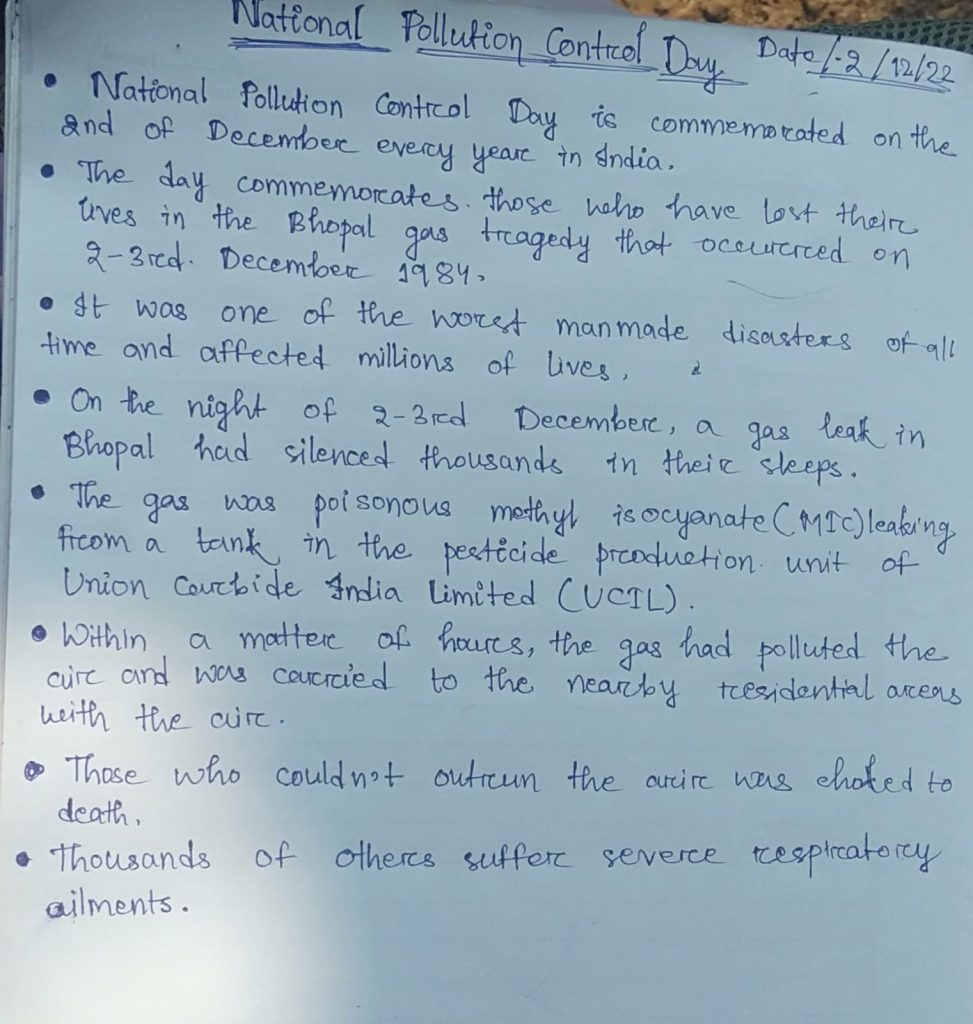 National Pollution Control Day Date/-2/12/22
• National Pollution Control Day is commemorated on the
2nd of December every year in India.
• The day commemorates. those who have lost their
lives in the Bhopal gas tragedy that occurred on
2-3rd. December 1984.
• It was one of the worst manmade disasters of all
time and affected millions of lives,
• On the night of 2-3rd December, a gas leak in
Bhopal had silenced thousands in their sleeps.
• The gas was poisonous methyl isocyanate (MIC) leaking
from a tank in the pesticide production unit of
Union Carbide India Limited (UCIL).
• Within a matter of hours, the gas had polluted the
air and was carried to the nearby residential areas
with the air.
• Those who couldn't outrun the air was choked to
death,
• Thousands of others suffer severe respiratory
ailments.